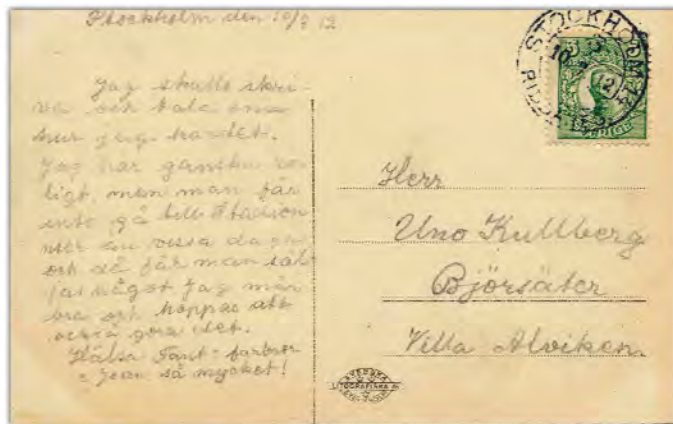 Stockholm den 10/7 12
Jag skulle skri-
va och tala om
hur jag har det.
Jag har ganska ro-
ligt, men man får
inte gå till Stadion
mer än vissa dagar
och då får man
något Jag mår
bra och hoppas att
också göra det.
Hälsa Tant = farbror
= Jean så mycket!
STOCKHOLM
10
12
SVERIGE
Herr
Uno Kullberg
Björsäter
Villa Alviken.
SVENSKA
LITOGRAFISKA